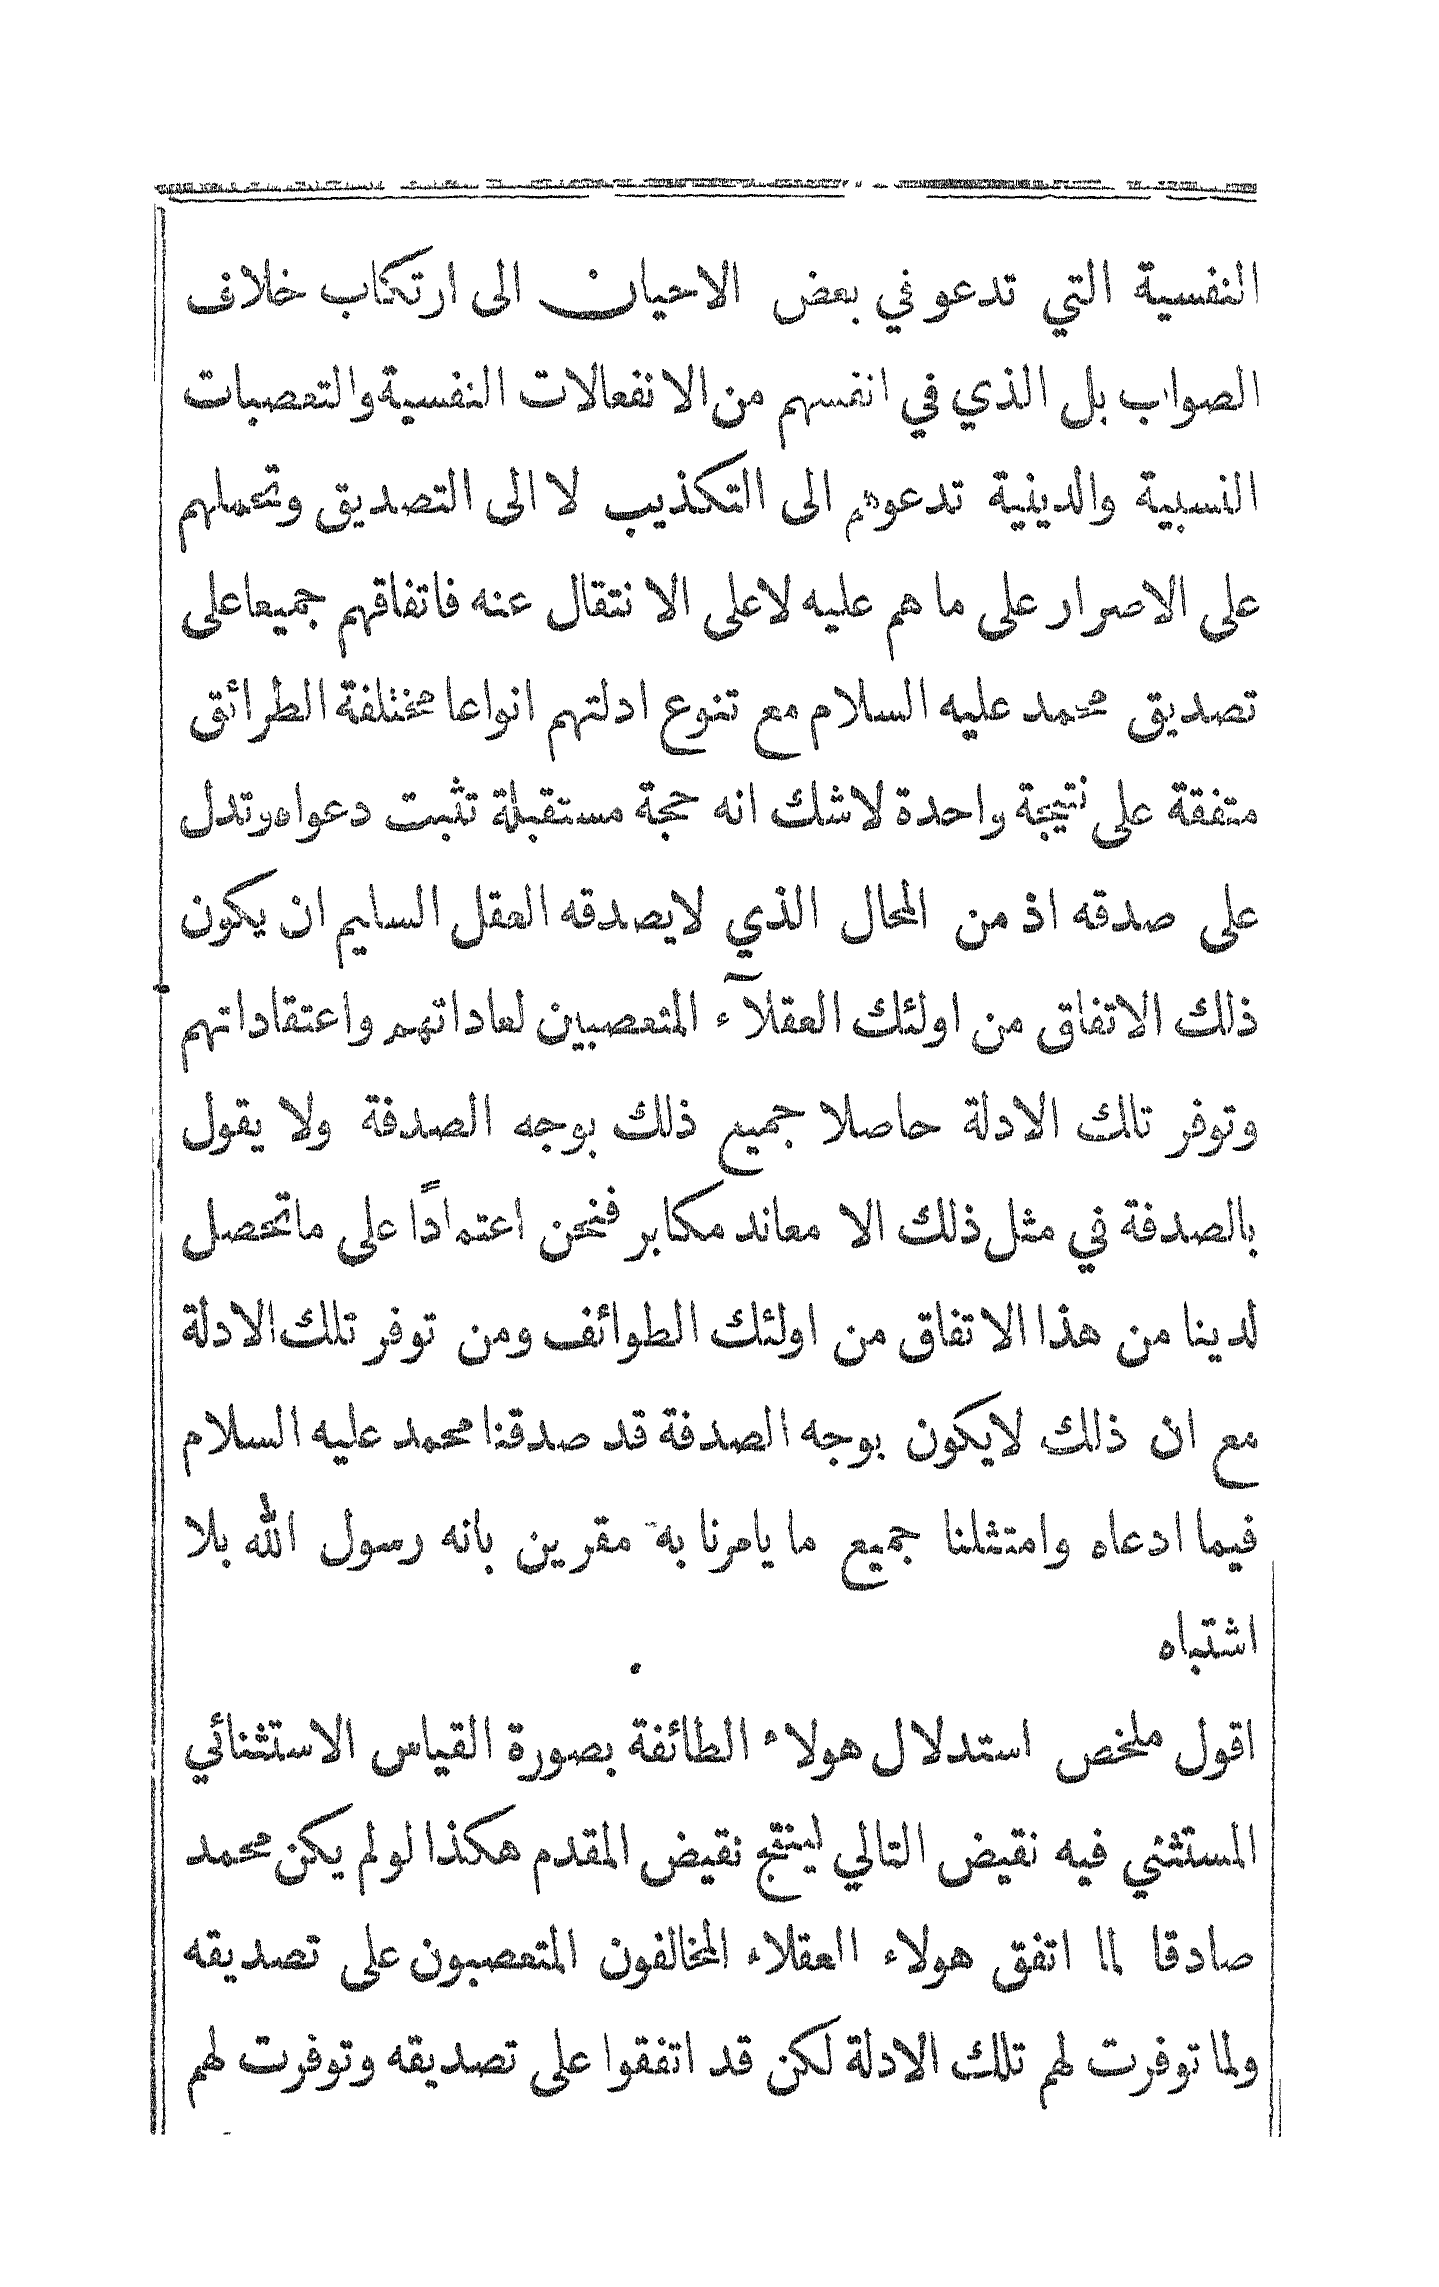 النفسية التي تدعو في بعض الاحيان الى ارتكاب خلاف
الصواب بل الذي في انفسهم من الانفعالات النفسية والتعصبات
النسبية والدينية تدعوهم الى التكذيب لا الى التصديق وتحملهم
على الاصرار على ما هم عليه لا على الانتقال عنه فاتفاقهم جميعا على
تصديق محمد عليه السلام مع تنوع ادلتهم انواعا مختلفة الطرائق
متفقة على نتيجة واحدة لاشك انه حجة مستقبلة تثبت دعواه وتدل
على صدقه اذ من المحال الذي لايصدقه العقل السليم ان يكون
ذلك الاتفاق من اولئك العقلآء المتعصبين لعاداتهم واعتقاداتهم
وتوفر تلك الادلة حاصلا جميع ذلك بوجه الصدفة ولا يقول
بالصدفة في مثل ذلك الا معاند مكابر فنحن اعتمادًا على ماتحصل
لدينا من هذا الاتفاق من اولئك الطوائف ومن توفر تلك الادلة
مع ان ذلك لايكون بوجه الصدفة قد صدقنا محمد عليه السلام
فيما ادعاه وامتثلنا جميع ما يامرنا به مقرين بانه رسول الله بلا
اشتباه
اقول ملخص استدلال هولاء الطائفة بصورة القياس الاستثنائي
المستثنى فيه نقيض التالي لينتج نقيض المقدم هكذا لو لم يكن محمد
صادقا لما اتفق هولاء العقلاء المخالفون المتعصبون على تصديقه
ولما توفرت لهم تلك الادلة لكن قد اتفقوا على تصديقه وتوفرت لهم